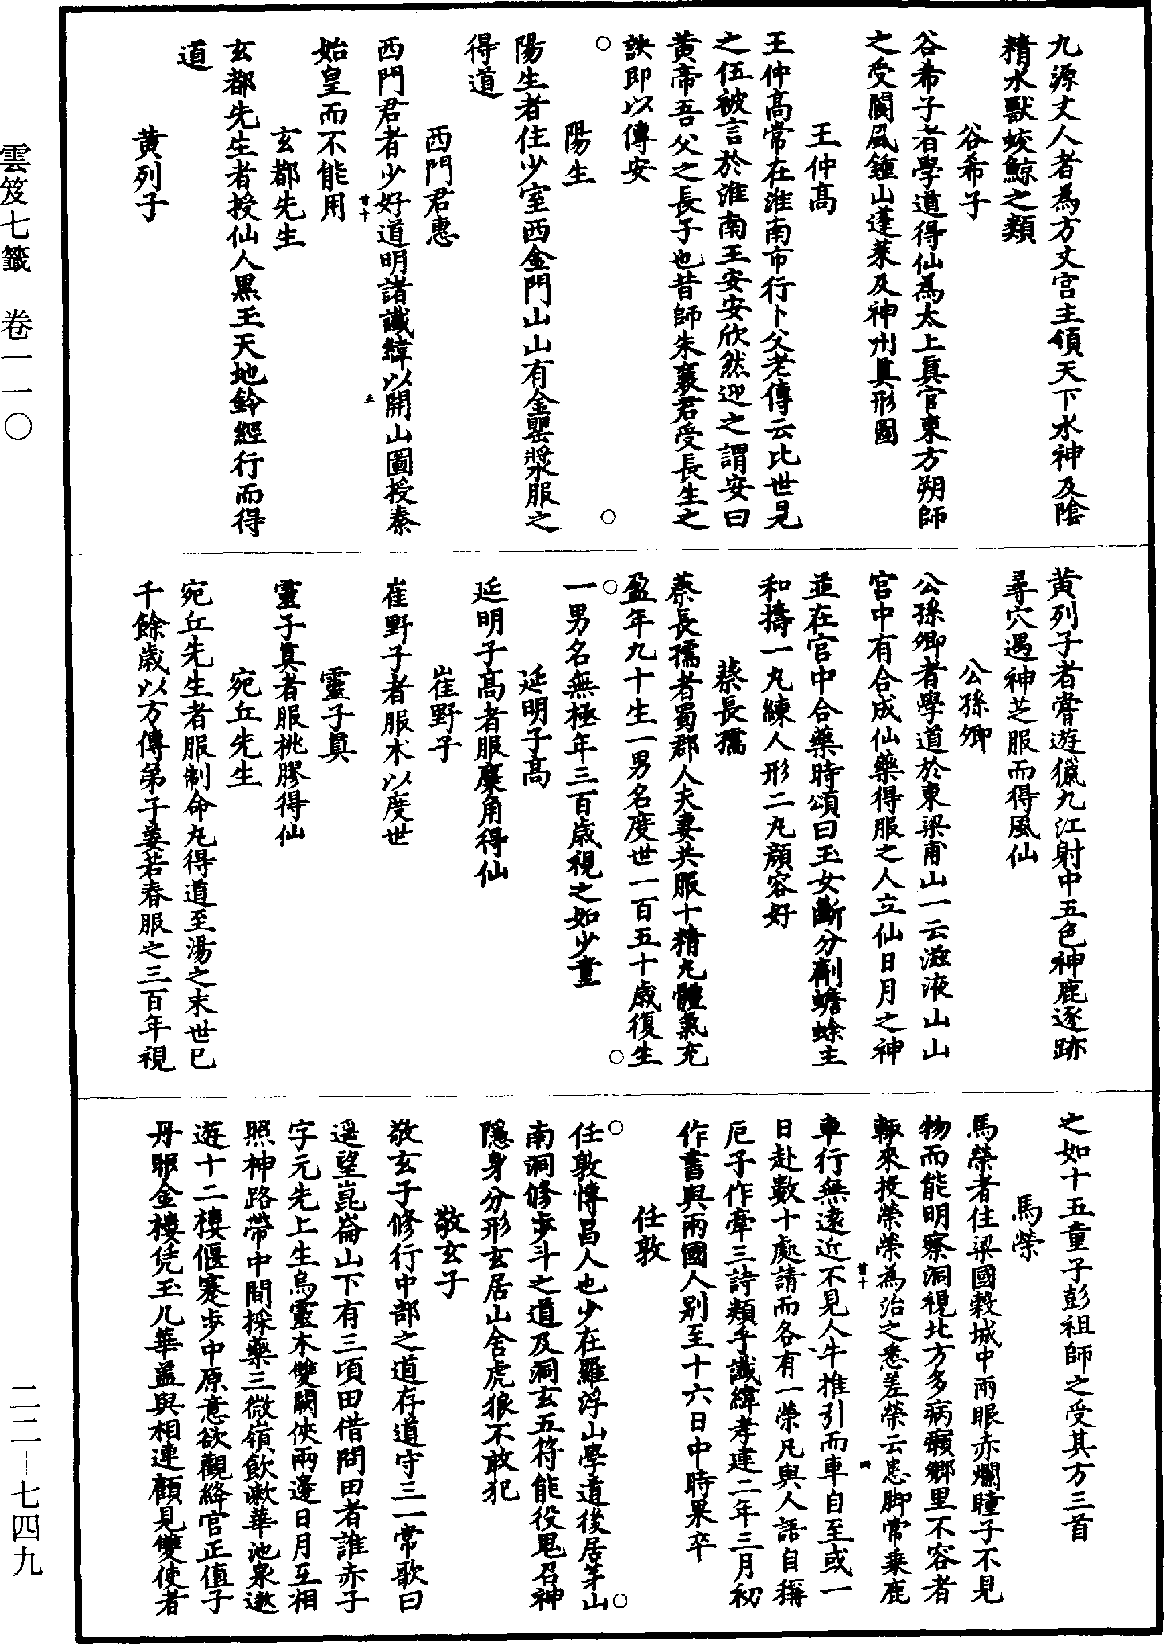 九源丈人者為方丈宮主領天下水神及陰
精水獸蛟鯨之類
谷希子
谷希子者學道得仙為太上真官東方朔師
之受閬風鍾山蓬萊及神州真形圖
王仲高
王仲高常在淮南市行卜父老傳云比世見
之伍被言於淮南王安安欣然迎之謂安曰
黃帝吾父之長子也昔師朱襄君受長生之
訣即以傳安
陽生
陽生者住少室西金門山山有金罌漿服之
得道
西門君惠
西門君者少好道明諸讖緯以開山圖授秦
始皇而不能用
玄都先生
玄都先生者授仙人黑玉天地鈐經行而得
道
黃列子
黃列子者嘗遊獵九江射中五色神鹿逐跡
尋穴遇神芝服而得風仙
公孫卿
公孫卿者學道於東梁甫山一云滋液山山
宮中有合成仙藥得服之人立仙日月之神
並在宮中合藥時頌曰玉女斷分劑蟾蜍主
和擣一丸練人形二丸顏容好
蔡長孺
蔡長孺者蜀郡人夫妻共服十精丸體氣充
盈年九十生一男名度世一百五十歲復生
一男名無極年三百歲視之如少童
延明子高
延明子高者服麋角得仙
崔野子
崔野子者服朮以度世
靈子真
靈子真者服桃膠得仙
宛丘先生
宛丘先生者服制命丸得道至湯之末世已
千餘歲以方傳弟子姜若春服之三百年視
之如十五童子彭祖師之受其方三首
馬榮
馬榮者住梁國穀城中兩眼赤爛瞳子不見
物而能明察洞視北方多病癩鄉里不容者
輒來投榮榮為治之悉差榮云患腳常乘鹿
車行無遠近不見人牛推引而車自至或一
日赴數十處請而各有一榮凡與人語自稱
厄子作牽三詩類乎讖緯孝建二年三月初
作書與兩國人別至十六日中時果卒
任敦
任敦博昌人也少在羅浮山學道後居茅山
南洞修步斗之道及洞玄五符能役鬼召神
隱身分形玄居山舍虎狼不敢犯
敬玄子
敬玄子修行中部之道存道守三一常歌曰
遙望崑崙山下有三頃田借問田者誰赤子
字元先上生烏靈木雙闕俠兩邊日月互相
照神路帶中間採藥三微嶺飲漱華池泉遨
遊十二樓偃蹇步中原意欲觀絳宮正值子
丹眠金樓凭玉几華蓋與相連顧見雙使者
雲笈七籤　卷一一〇
二二—七四九